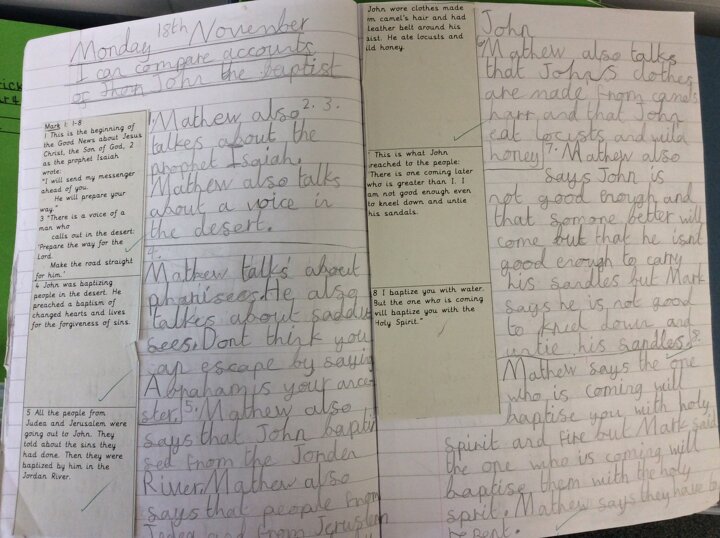 Monday 18th November
I can compare accounts
of John the baptist
Mark 1: 1-8
1 This is the beginning of
the Good News about Jesus
Christ, the Son of God, 2
as the prophet Isaiah
wrote:
"I will send my messenger
ahead of you.
He will prepare your
way."
3 "There is a voice of a
man who
calls out in the desert:
'Prepare the way for the
Lord.
Make the road straight
for him.'
4 John was baptizing
people in the desert. He
preached a baptism of
changed hearts and lives
for the forgiveness of sins.
5 All the people from
Judea and Jerusalem were
going out to John. They
told about the sins they
had done. Then they were
baptized by him in the
Jordan River.
1. Mathew also 2. 3.
talkes about the
prophet Isaiah.
Mathew also talks
about a voice in
the desert.
4.
Mathew talks about
pharisees. He also
talkes about saddus
sees. Dont think you
can escape by saying
Abraham is your ance
ster. 5. Mathew also
says that John bapti
sed from the Jorden
River. Mathew also
says that people from
Judea and from Jeruslem
John wore clothes made
om camel's hair and had
leather belt around his
aist. He ate locusts and
ild honey.
This is what John
reached to the people:
'There is one coming later
who is greater than I. I
am not good enough even
to kneel down and untie
his sandals.
8 I baptize you with water.
But the one who is coming
will baptize you with the
Holy Spirit."
John
6 Mathew also talks
that John,s clothes
are made from camels
harr and that John
eat locusts and wild
honey. 7. Mathew also
says John is
not good enough and
that somone better will
come but that he isnt
good enough to carry
his sandles but Mark
says he is not good
to kneel down and
untie his sandles. 8.
Mathew says the one
who is coming will
baptise you with holy
spirit and fire but Mark said
the one who is coming will
baptise them with the holy
spirit. Mathew says they have to
repent.